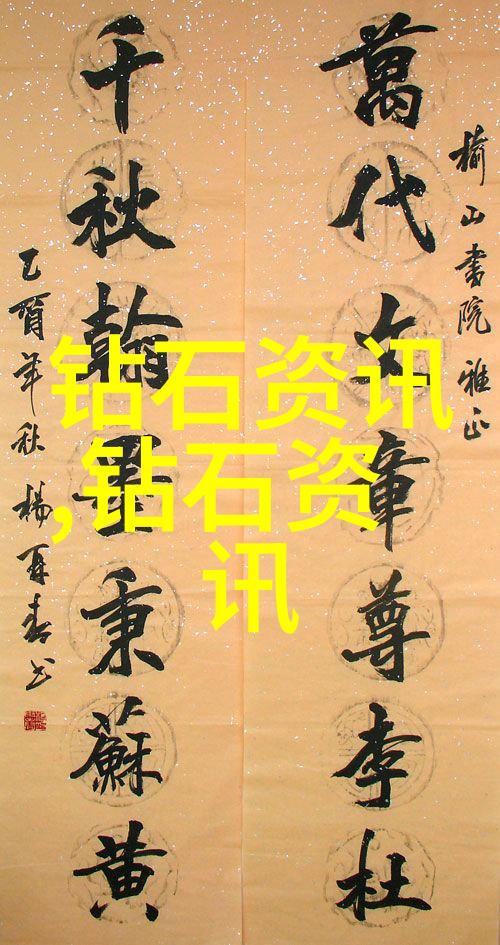 榆山書院 雅正
萬代文章尊李杜
千秋翰墨秉蘇黄
乙酉年秋 楊再春书
钻石资讯
,钻石资
讯